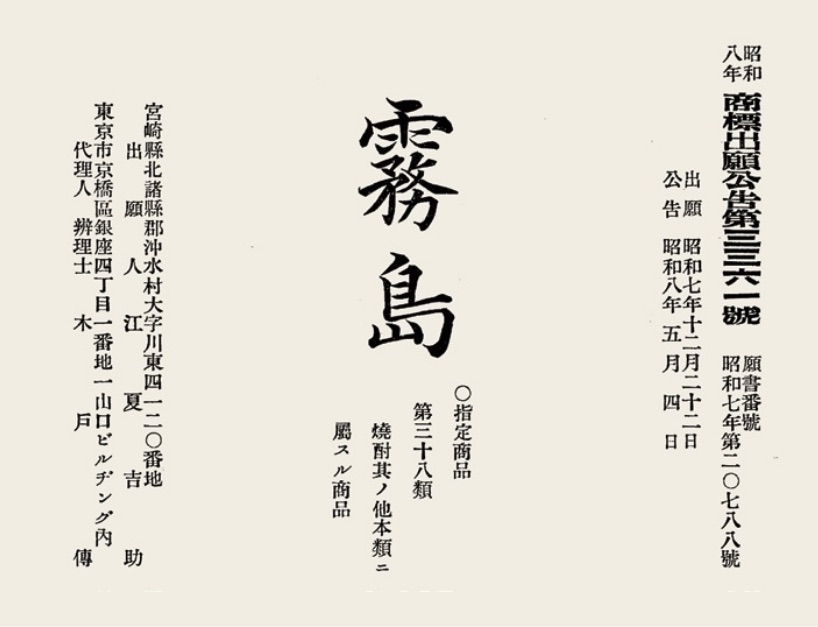 昭和八年
商標出願公告第三三六一號
願書番號
昭和七年第二〇七八八號
出願 昭和七年十二月二十二日
公告 昭和八年五月四日
霧島
〇指定商品
第三十八類
燒酎其ノ他本類ニ
屬スル商品
宮崎縣北諸縣郡沖水村大字川東四一二〇番地
出願人 江夏吉助
東京市京橋區銀座四丁目一番地一山口ビルヂング內
代理人 辨理士 木戶傳